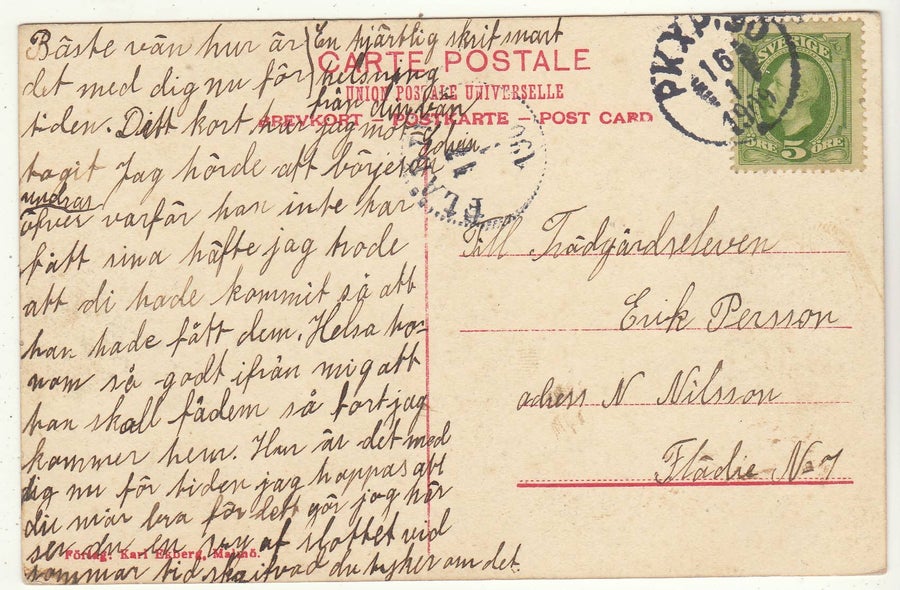 Bäste vän hur är
det med dig nu för
tiden. Ditt kort har jag mot-
tagit Jag hörde att börjesen
undrar
öfver varför han inte har
fått sina häfte jag trode
att di hade kommit så att
han hade fått dem. Helsa ho-
nom så godt ifrån mig att
han skall fådem så fort jag
kommer hem. Hur är det med
dig nu för tiden jag hoppas att
du mår bra för dett gör jag här
ser du en vy af slottet vid
sommar tid skrif vad du tyker om det
En hjärtlig skrif snart
helsning
från din vän
Johan
CARTE POSTALE
UNION POSTALE UNIVERSELLE
BREVKORT - POSTKARTE - POST CARD
PKXP.
16
1
1909
FLÄDIE
17
190
SVERIGE
ÖRE 5 ÖRE
Till Trädgårdseleven
Erik Persson
adress N Nilsson
Flädie No 7
Förlag: Karl Ekberg, Malmö.